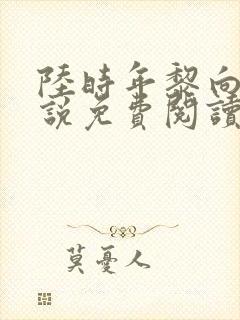 陸時年黎向
説免費閱讀
莫憂人